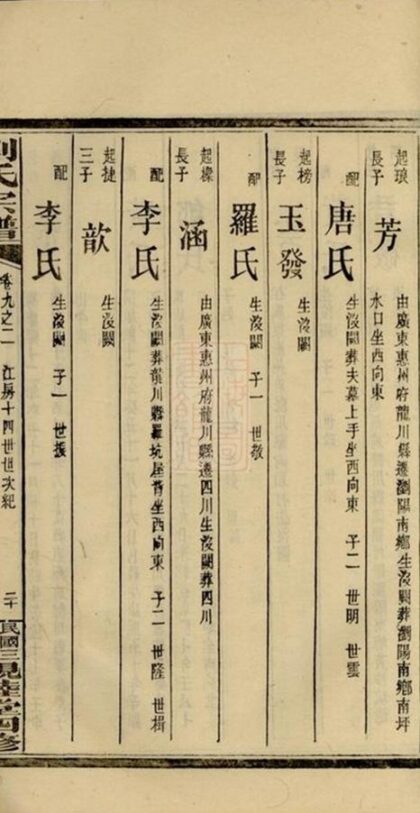 起琅長子
芳
由廣東惠州府龍川縣遷瀏陽南鄉生歿闕葬瀏陽南鄉南坪
水口坐西向東
配
唐氏
生歿闕葬夫墓上手坐西向東 子二 世明 世雲
起榜長子
玉發
生歿闕
配
羅氏
生歿闕 子一 世敬
起樑長子
涵
由廣東惠州府龍川縣遷四川生歿闕葬四川
配
李氏
生歿闕葬龍川縣羅坑屋背坐西向東 子二 世隆 世楫
起捷三子
歆
生歿闕
配
李氏
生歿闕 子一 世振
劉氏宗譜
卷九之二 江房十四世世次紀
二十
民國三
堂四修